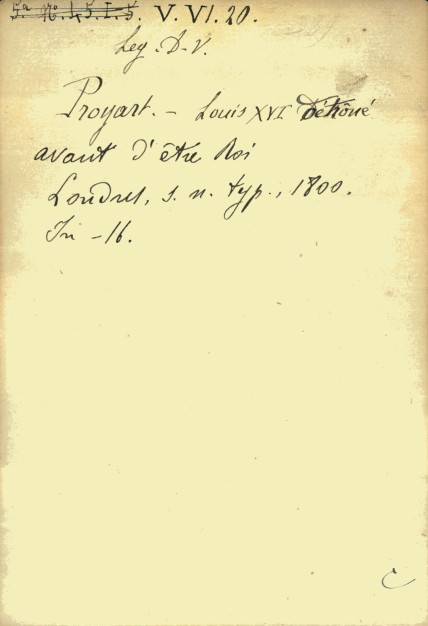 V. VI. 20.
Leg. D. V.
Proyart. - Louis XVI Détrôné
avant d'être Roi
Londres, s. n. typ., 1800.
In -16.
C